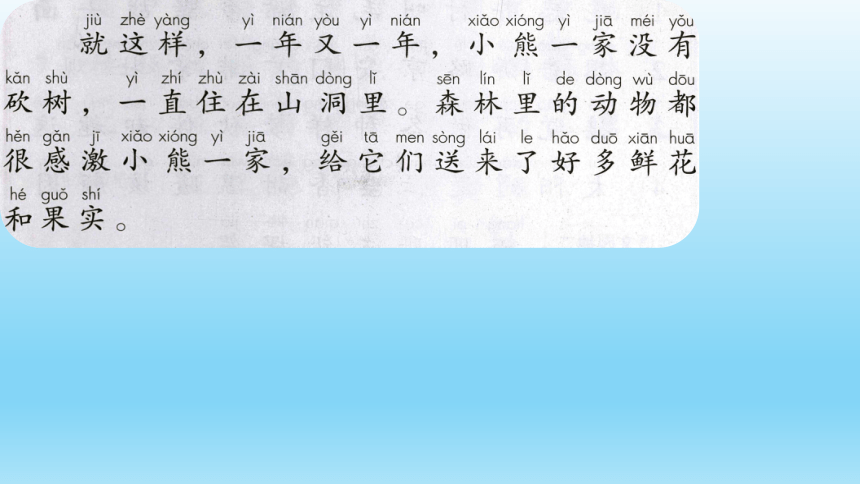 jiù zhè yàng yì nián yòu yì nián xiǎo xióng yì jiā méi yǒu
就这样，一年又一年，小熊一家没有
kǎn shù yì zhí zhù zài shān dòng lǐ sēn lín lǐ de dòng wù dōu
砍树，一直住在山洞里。森林里的动物都
hěn gǎn jī xiǎo xióng yì jiā gěi tā men sòng lái le hǎo duō xiān huā
很感激小熊一家，给它们送来了好多鲜花
hé guǒ shí
和果实。